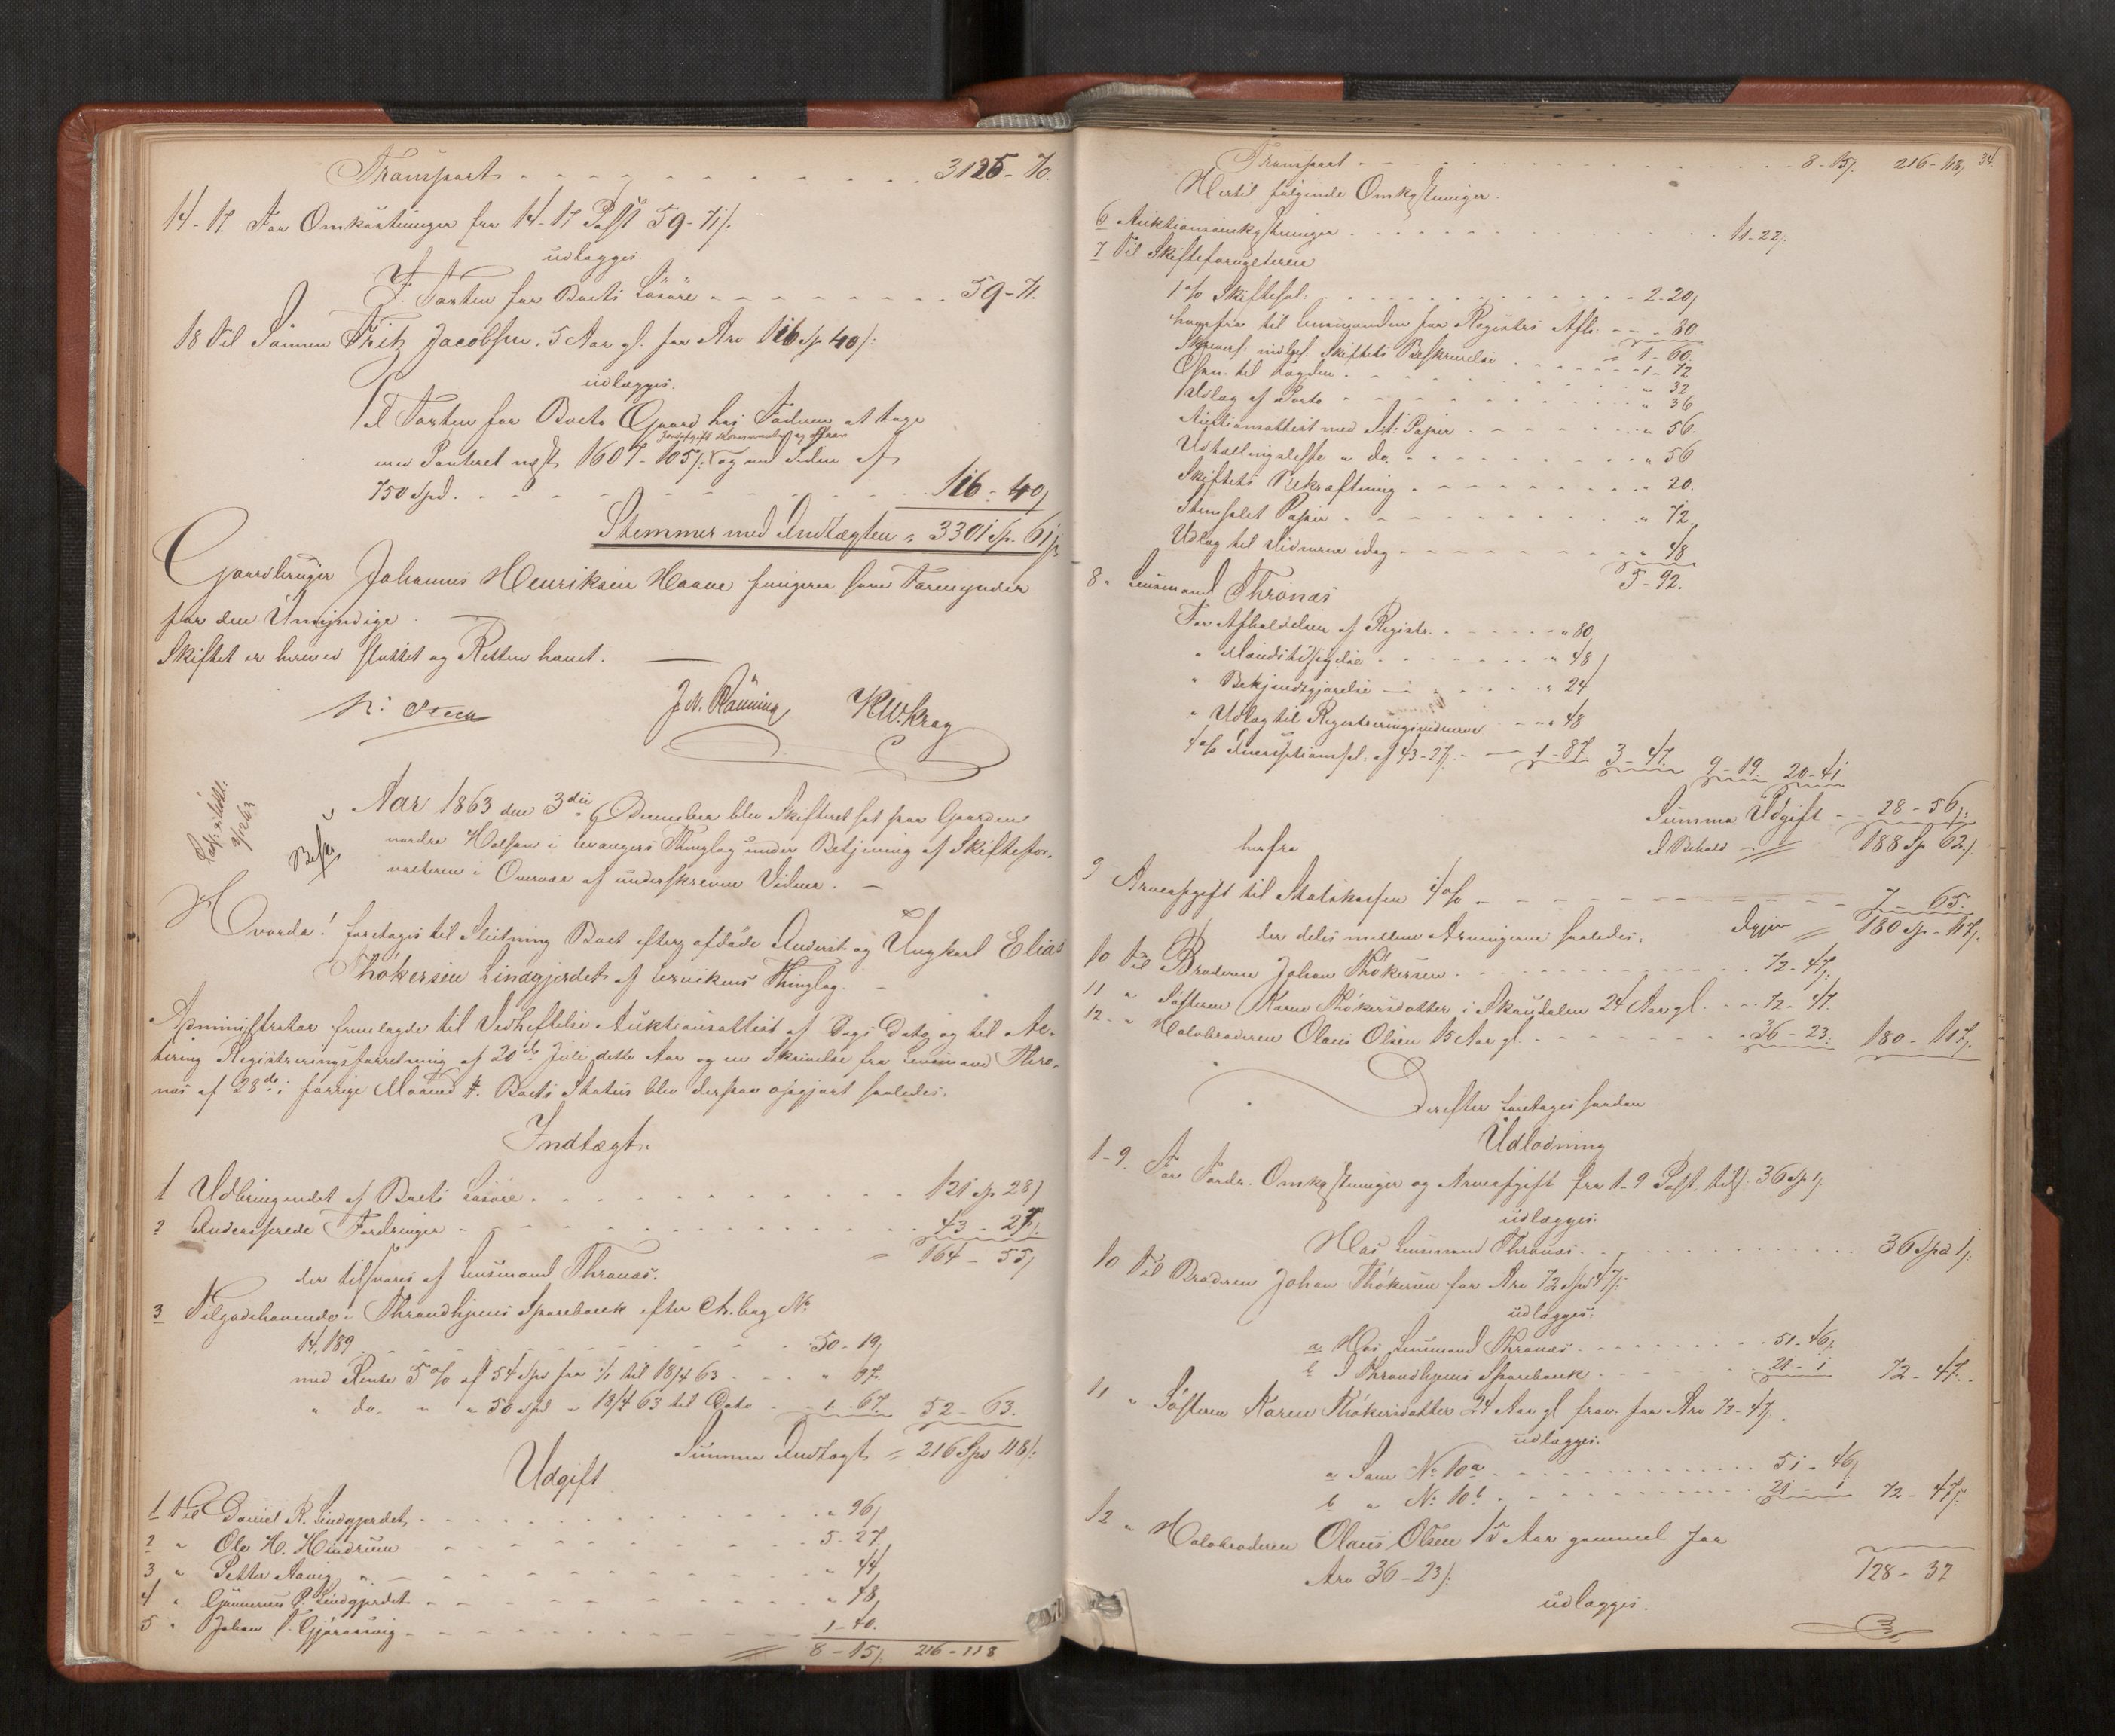 Transport 3125 - 70.
14-17. For Omkostninger fra 14-17 Post 59-71 s.
udlægges.
I Taxten for Boets Løsøre 59-71.
18 Til Sønnen Fritz Jacobsen. 5 Aar gl. for Arv 116 Sp 40 s:
udlægges.
I Taxten for Boets Gaard hos Faderen at tage
med Panteret næst 1607-105 s. og med Siden af
750 Spd. 116 - 40
Stemmer med Indtægten = 3301 Sp. 61 s.
Gaardbruger Johannes Henriksen Haave fungerer som Formynder
for den Umyndige.
Skiftet er hermed sluttet og Retten hævet.
J. N. Rønning K.W. Krag
Aar 1863 den 3die December blev Skifteret sat paa Gaarden
nordre Holsan i Levangers Thinglag under Betjening af Skiftefor-
valteren i Overvær af underskrevne Vidner. —
Hvorda! foretages til Slutning Boet efter afdøde Inderst og Ungkarl Elias
Thókersen Lindgjerdet af Leivikens Thinglag. —
Administrator fremlagde til Vedheftelse Auktionsattest af Dags Dato og til Ac-
tering Registreringsforretning af 20de Juli dette Aar og en Skrivelse fra Lensmand Thro-
næs af 28de i forrige Maaned #. Boets Status blev derpaa opgjort saaledes.
Indtægt.
1 Udbringendet af Boets Løsøre 121 Sp 28 s
2 Indcasserede Fordringer 43 - 27 s.
= 164 - 55
der tilsvares af Lensmand Thronæs.
3 Tilgodehavende i Throndhjems Sparebank efter Ctr. bog No
14,189 50 - 19
med Rente 5 % af 54 Spd fra 1/1 til 18/4 63 " 97.
" do. " " 50 Spd " 18/4 63 til Dato 1 - 67. 52 - 63.
Summa Indtægt = 216 Spd 118 s:
Udgift
1 Til Daniel R. Lindgjerdet " 96
2 " Ole H. Hindrum 5 - 27.
3 " Petter Aavig " 44
4 " Gunnerus P. Lindgjerdet " 48
5 " Johan T. Gjørasvig 1 - 40.
8 - 15 s. 216 - 118
34.
Transport 8 - 15 s. 216 - 118
Hertil følgende Omkostninger.
6 Auktionsomkostninger 11 - 22 s.
7 Til Skifteforvalteren
1 % Skiftesal. 2 - 20
herfra til Lensmanden for Registr. Afh. " 80
= 1 - 60.
Skrivers. indbef. Skiftets Beskrivelse 1 - 72
32
Udlæg af Porto " 36
Auctionsattest med St: Papir " 56.
Udtællingsliste " do. " 56
Skiftets Bekræftning " 20.
Stemplet Papir " 72.
Udlæg til Vidnerne idag " 48
5 - 92.
8 " Lensmand Thronæs
For Afholdelsen af Registr. " 80
" Mændstilsigelse " 48
" Bekjendtgjørelse " 24
" Udlæg til Registreringsvidnerne " 48
4 % Incassationssal. af 43-27 s. 1 - 87 3 - 47. 9 - 19. 20 - 41
Summa Udgift 28 - 56 s:
I Behold = 188 Sp 62 s.
herfra
9 Arveafgift til Statskassen 4 % 7 - 65.
Igjen = 180 Sp - 117 s.
der deles mellem Arvingerne saaledes:
10 Til Broderen Johan Thókersen 72 - 47 s:
11 " Søsteren Karen Thókersdatter i Skaudalen 24 Aar gl. 72 - 47.
12 " Halvbroderen Olaus Olsen 15 Aar gl. 36 - 23: 180 - 117 s.
Derefter foretages saadan
Udlodning
1-9. For Fordr. Omkostninger og Arveafgift fra 1-9 Post tils. 36 Sp 1 s:
udlægges.
Hos Lensmand Thronæs. 36 Spd 1 s.
10 Til Broderen Johan Thókersen for Arv 72 Spd 47 s:
udlægges.
a Hos Lensmand Thronæs 51 - 46
b I Throndhjems Sparebank 21 - 1 72 - 47.
11 " Søsteren Karen Thókersdatter 24 Aar gl frav. for Arv 72-47 s.
udlægges.
a Som No 10a 51 - 46
b " No 10b 21 - 1 72 - 47 s:
12 " Halvbroderen Olaus Olsen 15 Aar gammel for
Arv 36-23 s:
128 - 32
udlægges.